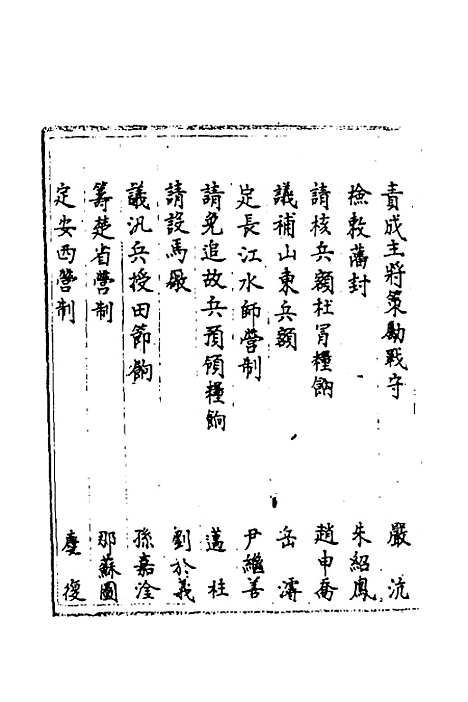 責成主將策勵戰守 嚴沆
檢敕藩封 朱紹鳳
請核兵額杜冐糧餉 趙申喬
議補山東兵額 岳濬
定長江水師營制 尹繼善
請免追故兵預領糧餉 邁柱
請設馬廠 劉於義
議汛兵授田節餉 孫嘉淦
籌楚省營制 那蘇圖
定安西營制 慶復